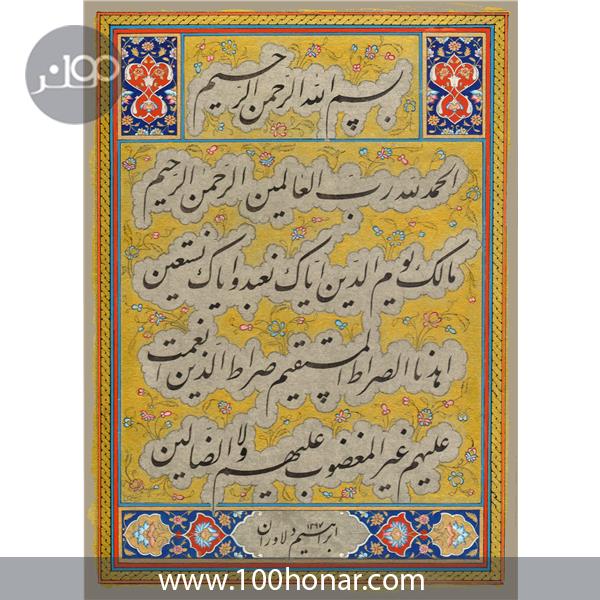 بسم الله الرحمن الرحیم
الحمد لله رب العالمین الرحمن الرحیم
مالک یوم الدین ایاک نعبد و ایاک نستعین
اهدنا الصراط المستقیم صراط الذین انعمت
علیهم غیر المغضوب علیهم ولا الضالین
ابراهیم دلاوران ۱۳۹۷
www.100honar.com